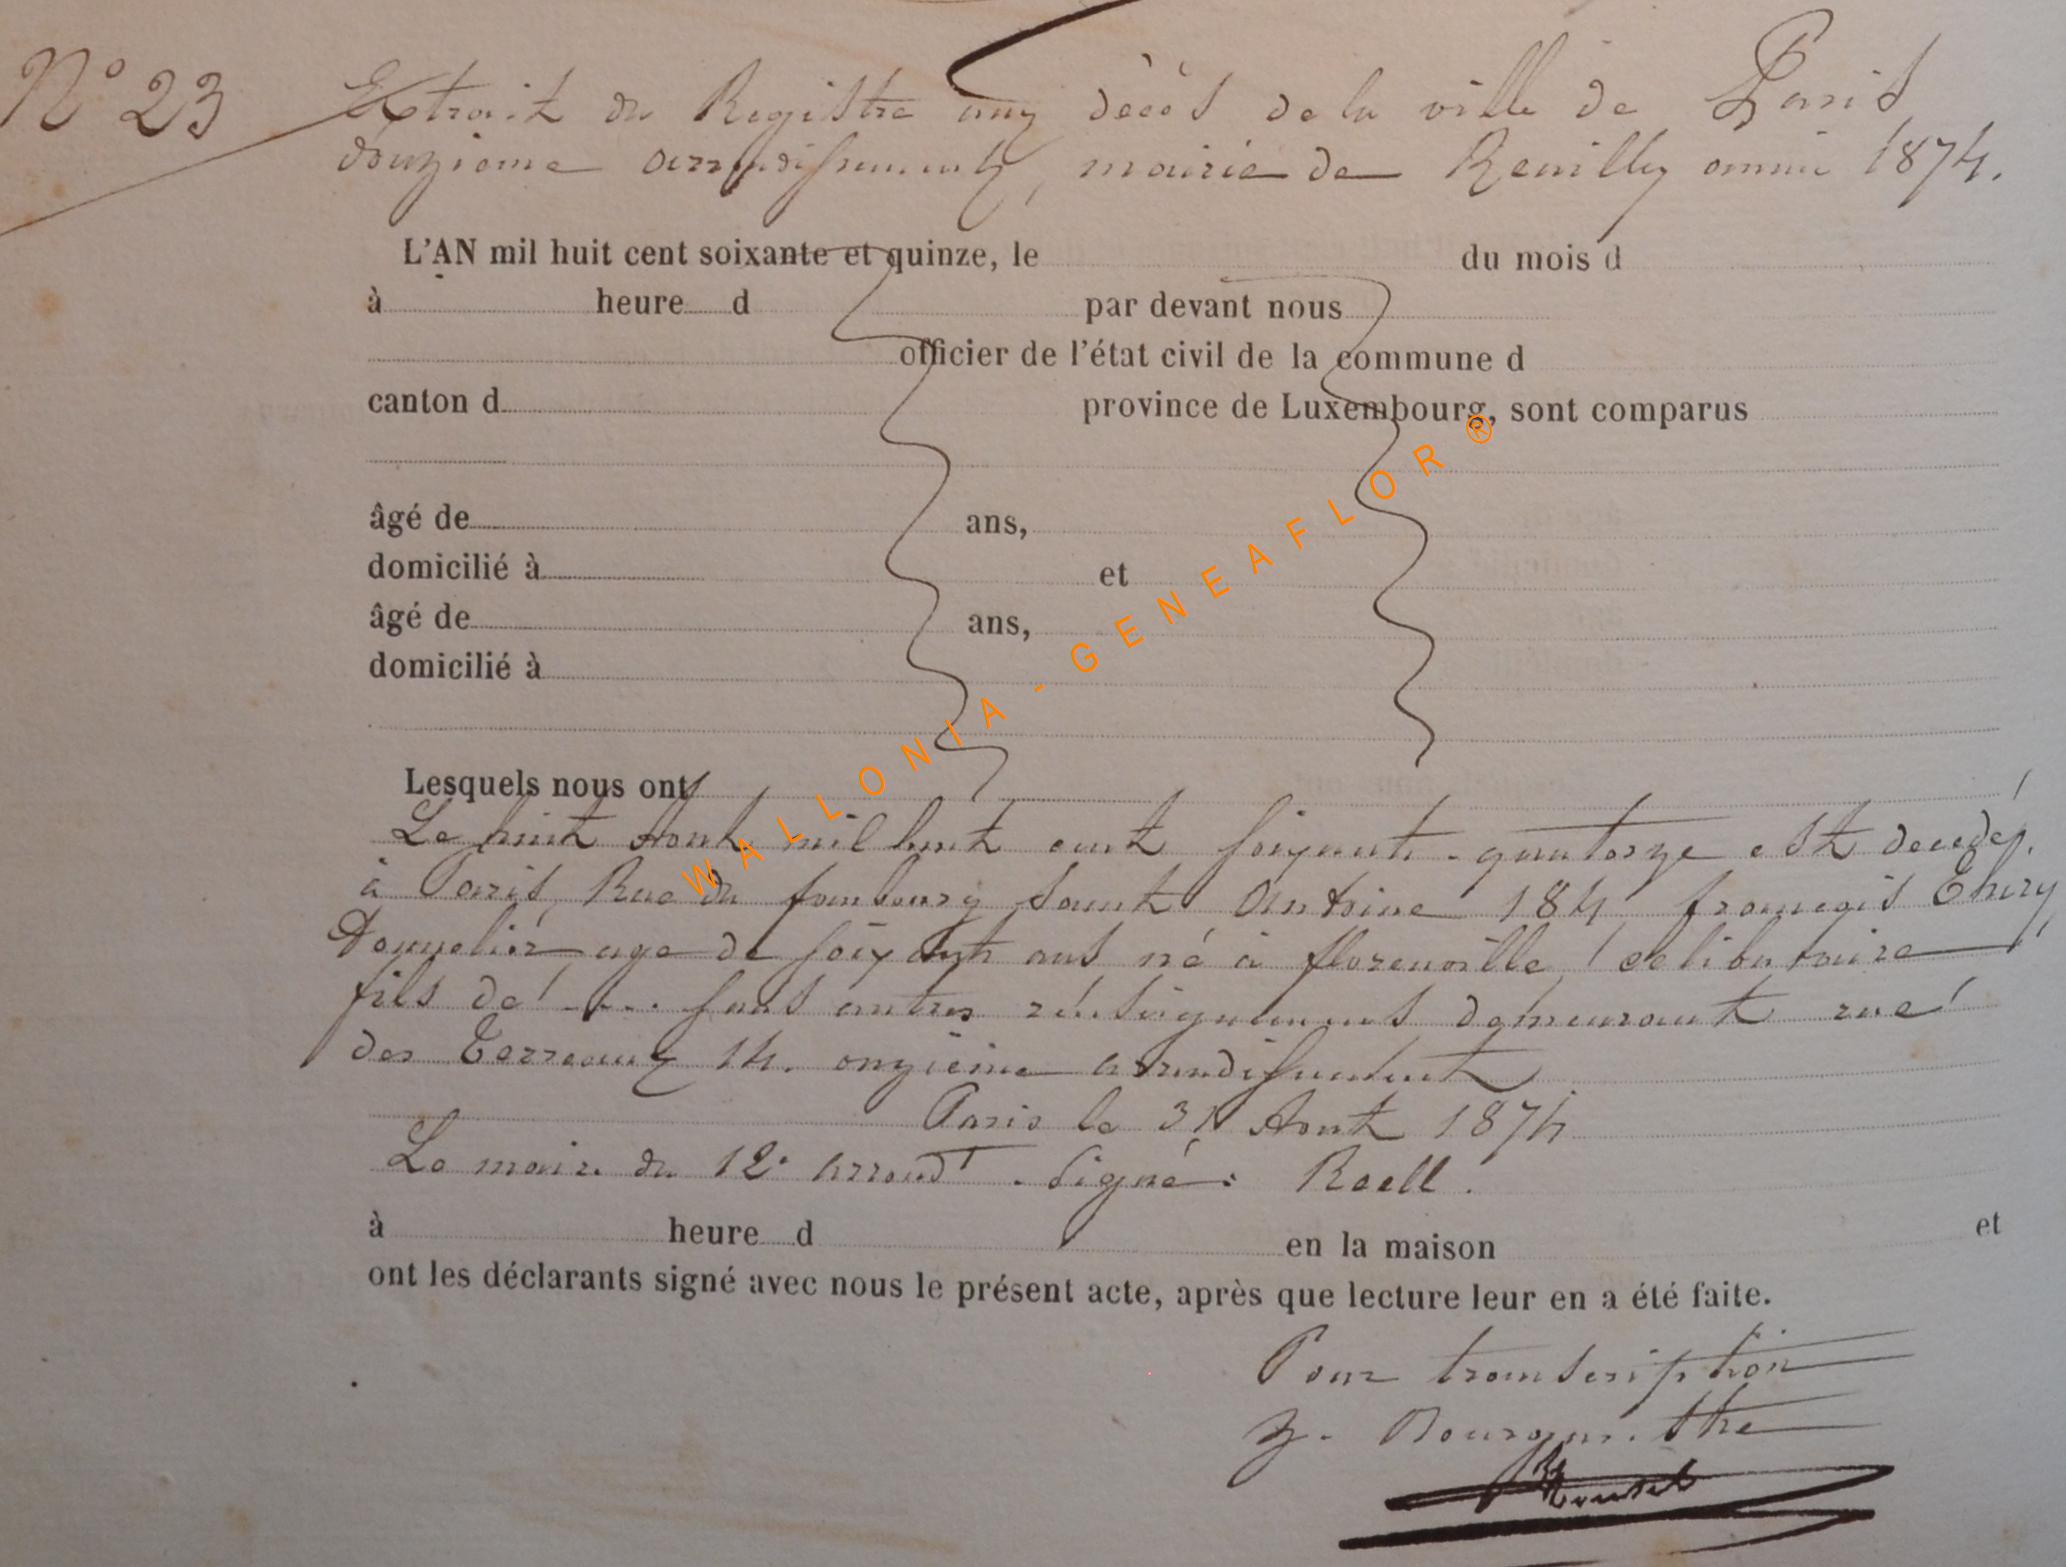 N° 23
Extrait du Registre aux décès de la ville de Paris
douzieme arrondissement, mairie de Reuilly année 1874.
L'AN mil huit cent soixante et quinze, le du mois d
à heure d par devant nous
officier de l'état civil de la commune d
canton d province de Luxembourg, sont comparus
âgé de ans,
domicilié à et
âgé de ans,
domicilié à
Lesquels nous ont
Le huit Aout mil huit cent soixante-quatorze est décédé
à Paris, Rue du faubourg Saint Antoine 184 francois Thiry
age de soixante ans né à florenville, célibataire
fils de ... sans autres renseignements demeurant rue
des Terreaux 14. onzieme arrondissement
Paris le 31 Aout 1874
Le maire du 12e arrondt. Signé: Roell.
à heure d en la maison et
ont les déclarants signé avec nous le présent acte, après que lecture leur en a été faite.
Pour transcription
Bourgmestre
WALLONIA-GENEAFLOR ®